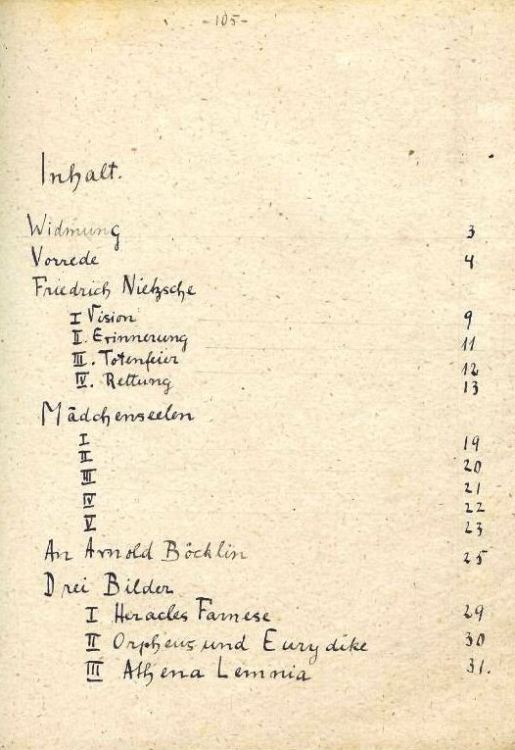 -105-
Inhalt.
Widmung 3
Vorrede 4
Friedrich Nietzsche
I Vision 9
II. Erinnerung 11
III. Totenfeier 12
IV. Rettung 13
Mädchenseelen
I 19
II 20
III 21
IV 22
V 23
An Arnold Böcklin 25
Drei Bilder
I Heracles Farnese 29
II Orpheus und Eurydike 30
III Athena Lemnia 31.